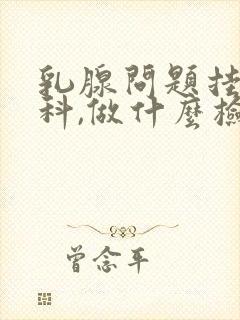 乳腺問題挂
科,做什麼檢
曾念平